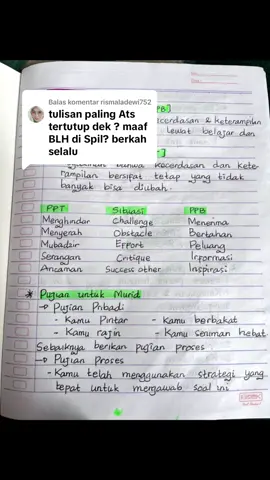 Balas komentar rismaladewi752
tulisan paling Ats
tertutup dek ? maaf
BLH di Spil? berkah
selalu
PB]
cerdasan & keterampilan
lewat belajar dan
bahwa kecerdasan dan kete
rampilan bersipat tetap yang tidak
banyak bisa diubah.
PPT Situasi PPB
Menghindar Challenge Menerima
Menyerah Obstacle Bertahan
Mubadzir Effort Peluang
Serangan Critique Informasi
Ancaman Success other Inspirasi
* Pujian untuk Murid
→ Pujian Pribadi
- Kamu Pintar - Kamu berbakat
- Kamu rajin - Kamu seniman hebat
Sebaiknya berikan pujian proses
→ Pujian Proses
- Kamu telah menggunakan strategi yang
tepat untuk menjawab soal ini